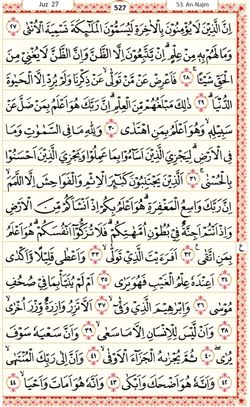 Juz 27 527 53. An-Najm
اِنَّ الَّذِيْنَ لَا يُؤْمِنُوْنَ بِالْاٰخِرَةِ لَيُسَمُّوْنَ الْمَلٰٓئِكَةَ تَسْمِيَةَ الْاُنْثٰى ٢٧
وَمَا لَهُمْ بِهٖ مِنْ عِلْمٍ اِنْ يَّتَّبِعُوْنَ اِلَّا الظَّنَّ وَاِنَّ الظَّنَّ لَا يُغْنِيْ مِنَ
الْحَقِّ شَيْـًٔا ٢٨ فَاَعْرِضْ عَنْ مَّنْ تَوَلّٰى عَنْ ذِكْرِنَا وَلَمْ يُرِدْ اِلَّا الْحَيٰوةَ
الدُّنْيَا ٢٩ ذٰلِكَ مَبْلَغُهُمْ مِّنَ الْعِلْمِ اِنَّ رَبَّكَ هُوَ اَعْلَمُ بِمَنْ ضَلَّ عَنْ
سَبِيْلِهٖ وَهُوَ اَعْلَمُ بِمَنِ اهْتَدٰى ٣٠ وَلِلّٰهِ مَا فِي السَّمٰوٰتِ وَمَا
فِي الْاَرْضِ لِيَجْزِيَ الَّذِيْنَ اَسَآءُوْا بِمَا عَمِلُوْا وَيَجْزِيَ الَّذِيْنَ اَحْسَنُوْا
بِالْحُسْنٰى ٣١ اَلَّذِيْنَ يَجْتَنِبُوْنَ كَبٰٓئِرَ الْاِثْمِ وَالْفَوَاحِشَ اِلَّا اللَّمَمَ
اِنَّ رَبَّكَ وَاسِعُ الْمَغْفِرَةِ هُوَ اَعْلَمُ بِكُمْ اِذْ اَنْشَاَكُمْ مِّنَ الْاَرْضِ
وَاِذْ اَنْتُمْ اَجِنَّةٌ فِيْ بُطُوْنِ اُمَّهٰتِكُمْ فَلَا تُزَكُّوْٓا اَنْفُسَكُمْ هُوَ اَعْلَمُ
بِمَنِ اتَّقٰى ٣٢ اَفَرَءَيْتَ الَّذِيْ تَوَلّٰى ٣٣ وَاَعْطٰى قَلِيْلًا وَّاَكْدٰى
٣٤ اَعِنْدَهٗ عِلْمُ الْغَيْبِ فَهُوَ يَرٰى ٣٥ اَمْ لَمْ يُنَبَّاْ بِمَا فِيْ صُحُفِ
مُوْسٰى ٣٦ وَاِبْرٰهِيْمَ الَّذِيْ وَفّٰٓى ٣٧ اَلَّا تَزِرُ وَازِرَةٌ وِّزْرَ اُخْرٰى
٣٨ وَاَنْ لَّيْسَ لِلْاِنْسَانِ اِلَّا مَا سَعٰى ٣٩ وَاَنَّ سَعْيَهٗ سَوْفَ
يُرٰى ٤٠ ثُمَّ يُجْزٰىهُ الْجَزَآءَ الْاَوْفٰى ٤١ وَاَنَّ اِلٰى رَبِّكَ الْمُنْتَهٰى
٤٢ وَاَنَّهٗ هُوَ اَضْحَكَ وَاَبْكٰى ٤٣ وَاَنَّهٗ هُوَ اَمَاتَ وَاَحْيَا ٤٤